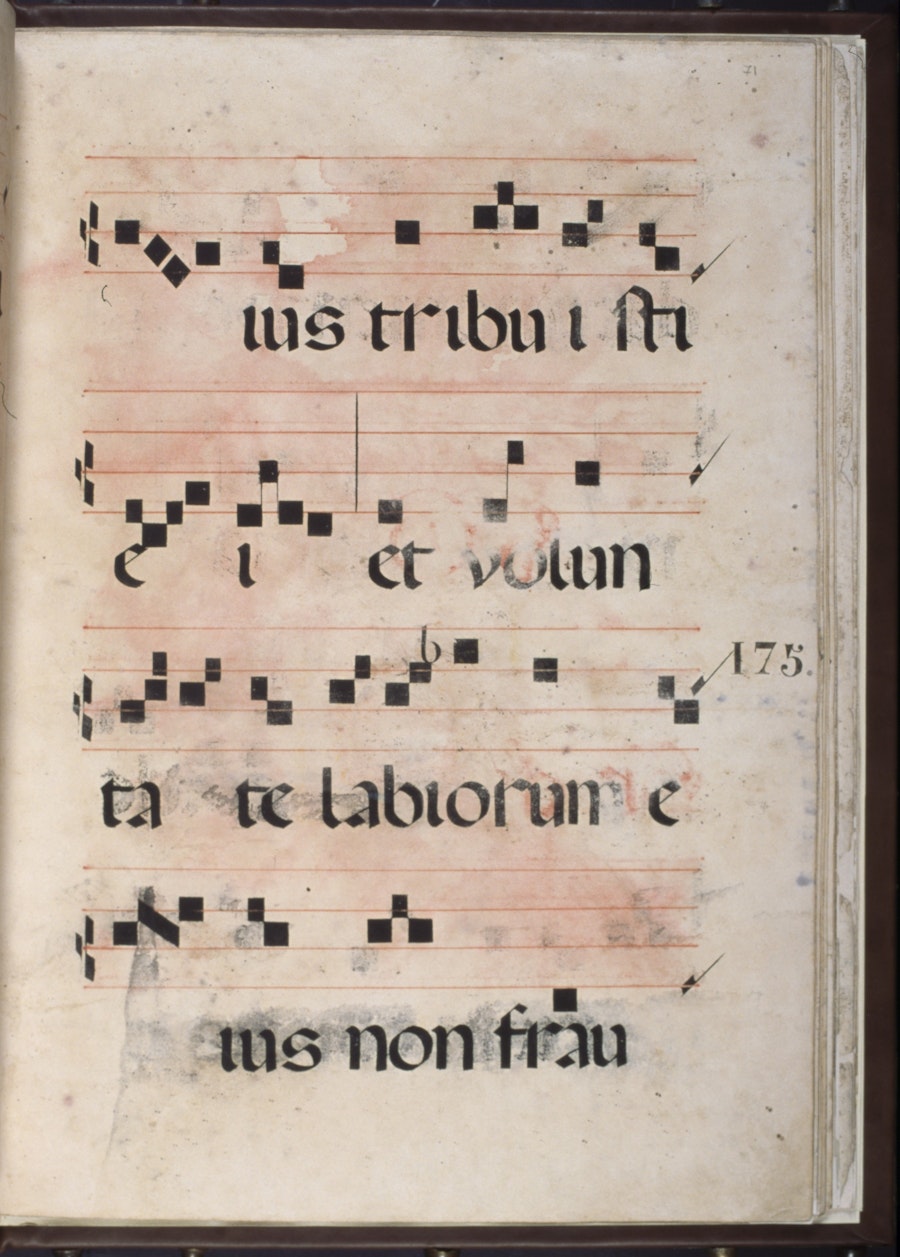 71
ius tribu i sti
e i et volun
b
175
ta te labiorum e
ius non frau